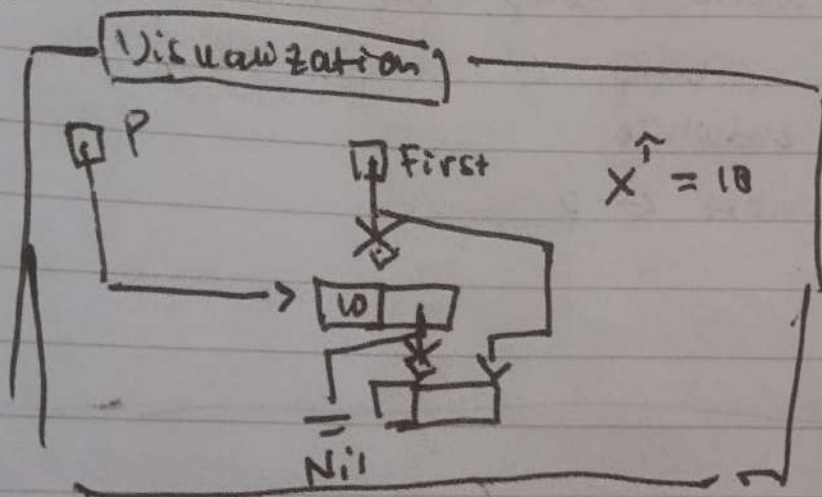 Visualization
P
First
X↑ = 10
10
Nil